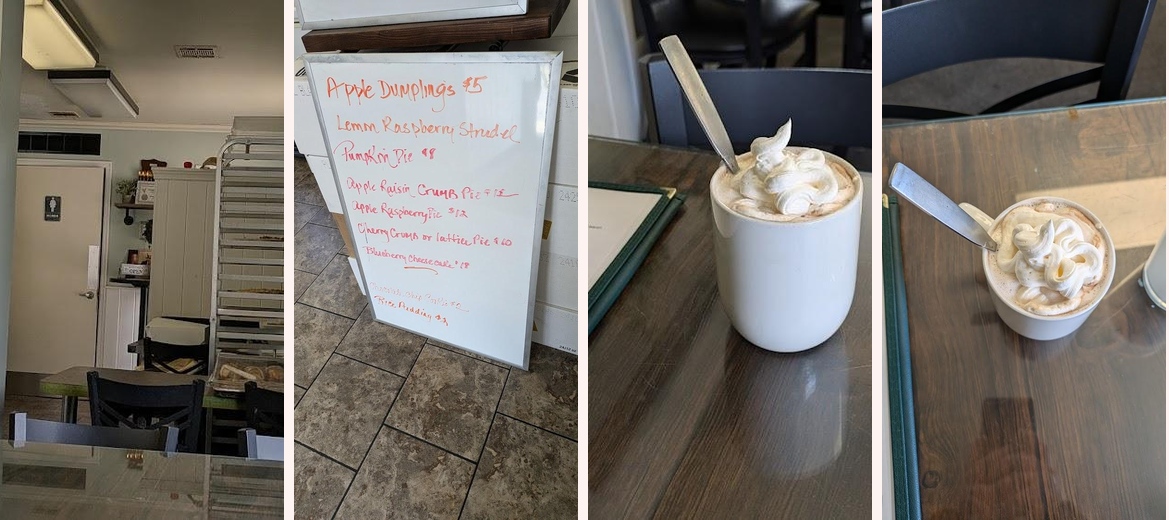 Apple Dumplings $5
Lemon Raspberry Strudel
Pumpkin Pie
Apple Raisin Crumb Pie
Apple Raspberry Pie
Cherry Crumb or Lattice Pie
Blueberry Cheesecake
Rice Pudding